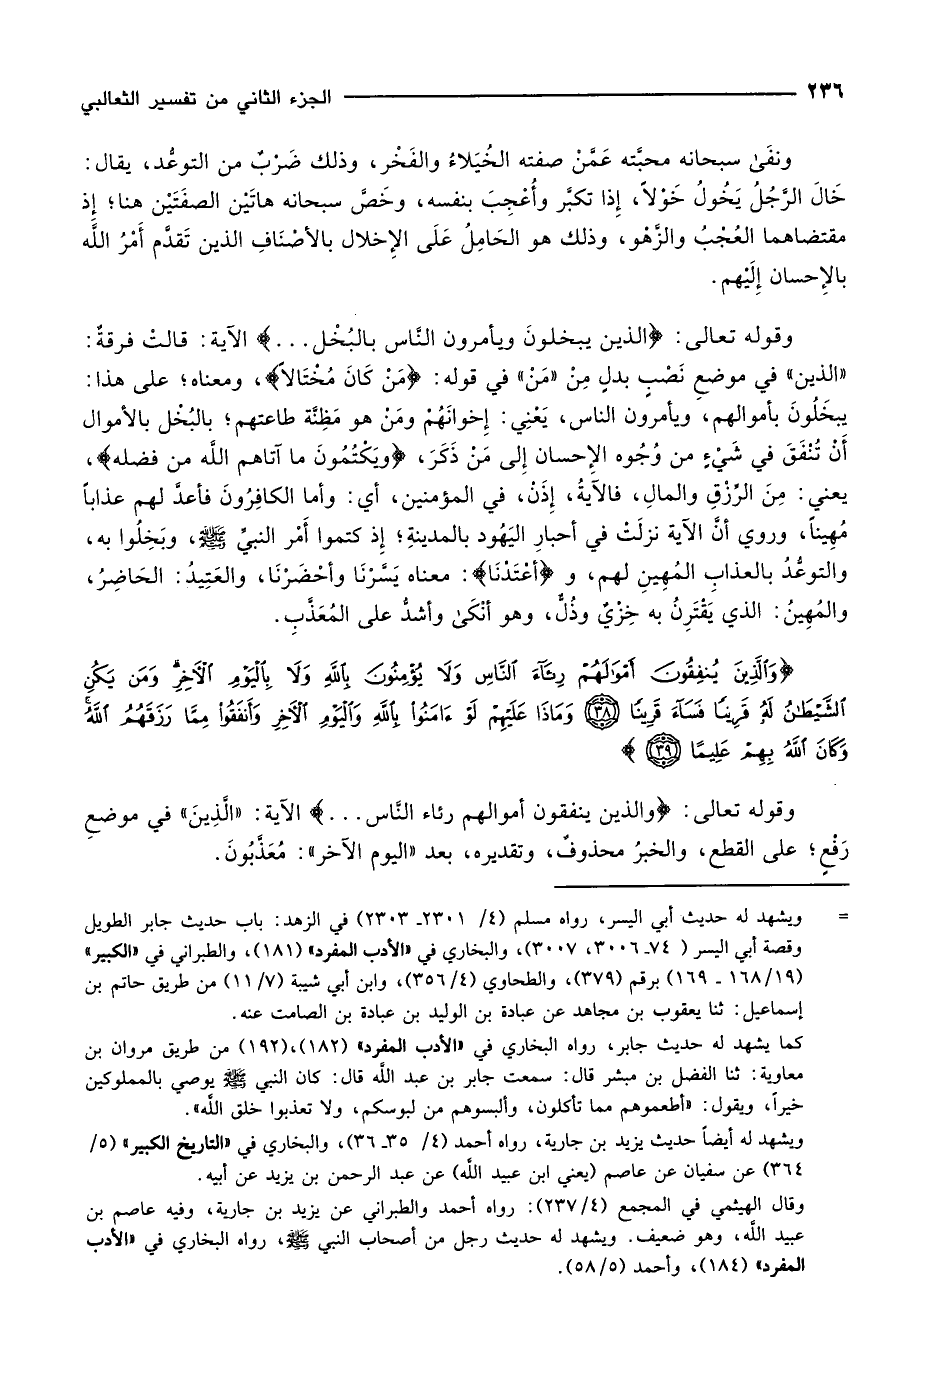 ٢٣٦ الجزء الثاني من تفسير الثعالبي
ونفَىٰ سبحانه محبَّته عَمَّنْ صفته الخُيَلاءُ والفَخْر، وذلك ضَرْبٌ من التوعُّد، يقال:
خَالَ الرَّجُلُ يَخُولُ خَوْلاً، إِذا تكبَّر وأُعْجِبَ بنفسه، وخَصَّ سبحانه هاتَيْن الصفتَيْن هنا؛ إِذ
مقتضاهما العُجْبُ والزَّهْو، وذلك هو الحَامِلُ عَلَى الإِخلال بالأصْنَافِ الذين تَقدَّم أَمْرُ اللَّه
بالإِحسان إِلَيْهم.
وقوله تعالى: ﴿الذين يبخلونَ ويأمرون النَّاس بالبُخْل...﴾ الآية: قالتْ فرقةٌ:
«الذين» في موضعِ نَصْبٍ بدلٍ مِنْ «مَنْ» في قوله: ﴿مَن كَانَ مُخْتَالاً﴾، ومعناه؛ على هذا:
يبخَلُونَ بأموالهم، ويأمرون الناس، يَعْنِي: إِخوانَهُمْ ومَنْ هو مَظِنَّة طاعتهم؛ بالبُخْل بالأموال
أَنْ تُنْفَقَ في شَيْءٍ من وُجُوه الإِحسان إلى مَنْ ذَكَرَ، ﴿ويَكْتُمُونَ ما آتاهم اللَّه من فضله﴾،
يعني: مِنَ الرِّزْقِ والمالِ، فالآيةُ، إِذَنْ، في المؤمنين، أي: وأما الكافِرُونَ فأعدَّ لهم عذاباً
مُهِيناً، وروي أنَّ الآية نزلَتْ في أحبارِ اليَهُود بالمدينةِ؛ إِذ كتموا أَمْر النبيِّ ﷺ، وبَخِلُوا به،
والتوعُّدُ بالعذابِ المُهِينِ لهم، و ﴿أَعْتَدْنَا﴾: معناه يَسَّرْنَا وأحْضَرْنَا، والعَتِيدُ: الحَاضِرُ،
والمُهِينُ: الذي يَقْتَرِنُ به خِزْيٌ وذُلٌّ، وهو أَنْكَىٰ وأشدُّ على المُعَذَّبِ.
﴿وَٱلَّذِينَ يُنفِقُونَ أَمْوَٰلَهُمْ رِئَآءَ ٱلنَّاسِ وَلَا يُؤْمِنُونَ بِٱللَّهِ وَلَا بِٱلْيَوْمِ ٱلْآخِرِ ۗ وَمَن يَكُنِ
ٱلشَّيْطَٰنُ لَهُۥ قَرِينًا فَسَآءَ قَرِينًا ﴿٣٨﴾ وَمَاذَا عَلَيْهِمْ لَوْ ءَامَنُوا۟ بِٱللَّهِ وَٱلْيَوْمِ ٱلْآخِرِ وَأَنفَقُوا۟ مِمَّا رَزَقَهُمُ ٱللَّهُ ۚ
وَكَانَ ٱللَّهُ بِهِمْ عَلِيمًا ﴿٣٩﴾ ﴾
وقوله تعالى: ﴿والذين ينفقون أموالهم رئاء النَّاس...﴾ الآية: «الَّذِينَ» في موضعِ
رَفْعٍ؛ على القطع، والخبرُ محذوفٌ، وتقديره، بعد «اليوم الآخر»: مُعَذَّبُونَ.
= ويشهد له حديث أبي اليسر، رواه مسلم (٤/ ٢٣٠١ـ ٢٣٠٣) في الزهد: باب حديث جابر الطويل
وقصة أبي اليسر ( ٧٤ـ ٣٠٠٦، ٣٠٠٧)، والبخاري في «الأدب المفرد» (١٨١)، والطبراني في «الكبير»
(١٦٨/١٩ ـ ١٦٩) برقم (٣٧٩)، والطحاوي (٣٥٦/٤)، وابن أبي شيبة (١١/٧) من طريق حاتم بن
إسماعيل: ثنا يعقوب بن مجاهد عن عبادة بن الوليد بن عبادة بن الصامت عنه.
كما يشهد له حديث جابر، رواه البخاري في «الأدب المفرد» (١٨٢)،(١٩٢) من طريق مروان بن
معاوية: ثنا الفضل بن مبشر قال: سمعت جابر بن عبد اللَّه قال: كان النبي ﷺ يوصي بالمملوكين
خيراً، ويقول: «أطعموهم مما تأكلون، وألبسوهم من لبوسكم، ولا تعذبوا خلق اللَّه».
ويشهد له أيضاً حديث يزيد بن جارية، رواه أحمد (٤/ ٣٥ـ ٣٦)، والبخاري في «التاريخ الكبير» (٥/
٣٦٤) عن سفيان عن عاصم (يعني ابن عبيد اللَّه) عن عبد الرحمن بن يزيد عن أبيه.
وقال الهيثمي في المجمع (٢٣٧/٤): رواه أحمد والطبراني عن يزيد بن جارية، وفيه عاصم بن
عبيد اللَّه، وهو ضعيف. ويشهد له حديث رجل من أصحاب النبي ﷺ، رواه البخاري في «الأدب
المفرد» (١٨٤)، وأحمد (٥٨/٥).